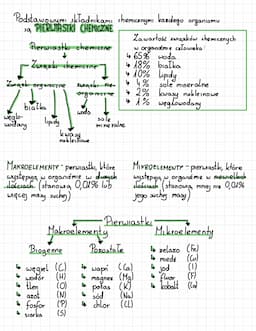 Podstawowymi składnikami chemicznymi każdego organizmu
są PIERWIASTKI CHEMICZNE
Pierwiastki chemiczne
Związki chemiczne
Związki organiczne
Związki nie-
organiczne
węglo-
wodany
białka
lipidy
kwasy
nukleinowe
woda
sole
mineralne
Zawartość związków chemicznych
w organizmie człowieka:
65% woda
18% białka
10% lipidy
4% sole mineralne
2% kwasy nukleinowe
1% węglowodany
MAKROELEMENTY - pierwiastki, które
występują w organizmie w dużych
ilościach (stanowią 0,01% lub
więcej masy suchej)
MIKROELEMENTY - pierwiastki, które
występują w organizmie w niewielkich
ilościach (stanowią mniej niż 0,01%
jego suchej masy)
Pierwiastki
Makroelementy
Mikroelementy
Biogenne
Pozostałe
węgiel (C)
wodór (H)
tlen (O)
azot (N)
fosfor (P)
siarka (S)
wapń (Ca)
magnez (Mg)
potas (K)
sód (Na)
chlor (Cl)
żelazo (Fe)
miedź (Cu)
jod (I)
fluor (F)
kobalt (Co)